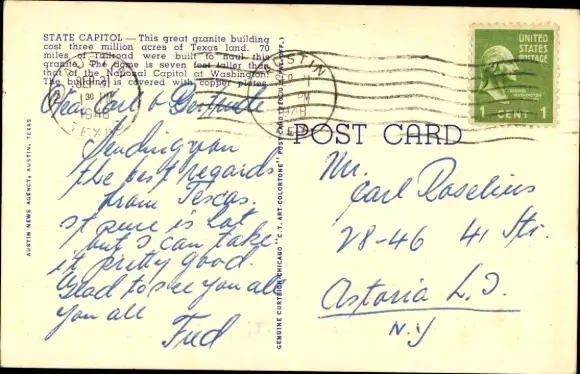 STATE CAPITOL — This great granite building
cost three million acres of Texas land. 70
miles of railroad were built to haul this
granite. The dome is seven feet taller than
that of the National Capitol at Washington.
The building is covered with copper plates.
AUSTIN
1948
TEXAS
AUSTIN
PM
1948
TEXAS
UNITED
STATES
POSTAGE
1 CENT 1
POST CARD
Dear Carl & Gertrude
Sending you
the best regards
from Texas.
It sure is hot
but I can take
it pretty good.
Glad to see you all
you all
Fred
Mr.
Carl Roselius
28-46 41 Str.
Astoria L.I.
N.Y
AUSTIN NEWS AGENCY, AUSTIN, TEXAS
GENUINE CURTEICH-CHICAGO "C.T. ART-COLORTONE" POST CARD